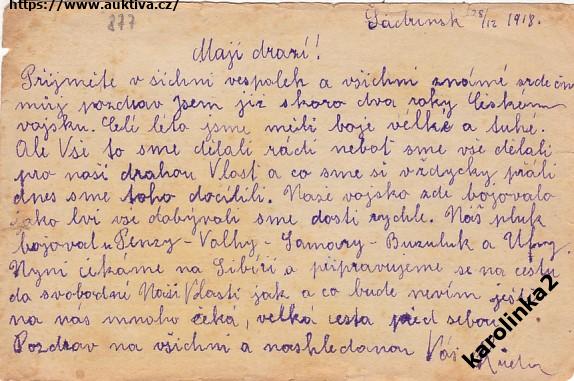 https://www.auktiva.cz/
877
Šadrinsk 25/12 1918.
Mají drazí!
Přijměte v šichni vespolek a všichni známé srdečný
můj pozdrav jsem již skoro dva roky Českém
vojsku. Celí léto jsme měli boje velké a tuhé.
Ale Vší to sme dělali rádi nebot sme vše dělali
pro naši drahou Vlast a co sme si vždycky přáli
dnes sme toho docílili. Naše vojsko zde bojovalo
jako lvi vše dobývali sme dosti rychle. Náš pluk
bojoval u Penzy - Volhy - Samary - Buzuluk a Ufy.
Nyní čekáme na Sibíři a připravujeme se na cestu
do svobodné Naší Vlasti jak a co bude nevím ještě
na nás mnoho čeká, velká cesta před sebou
Pozdrav na všichni a nashledanou Váš
karolinka2